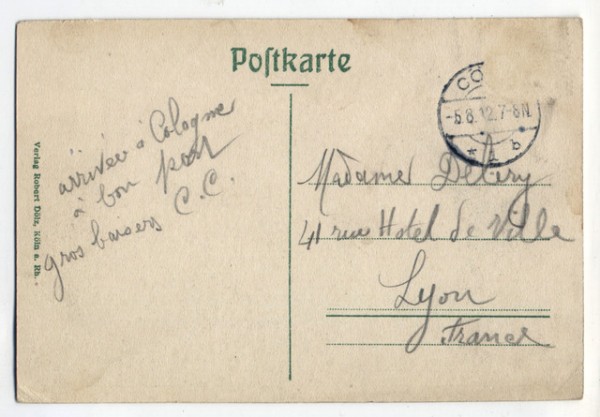 Postkarte
CÖ
-5.8.12.7-8N.
* 1 b
arrivée à Cologne
à bon port
gros baisers C.C.
Madame Deléry
41 rue Hotel de Ville
Lyon
France
Verlag Robert Dülz, Köln a. Rh.